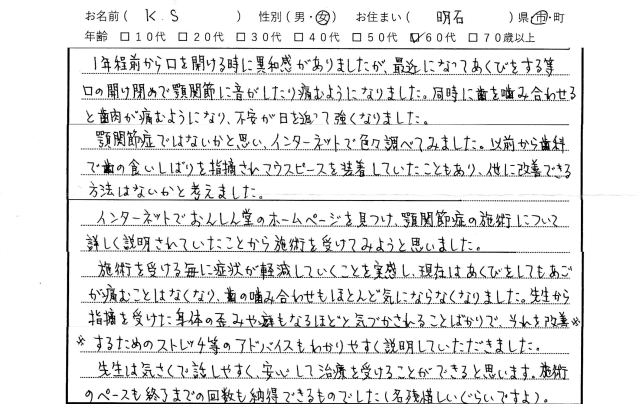 お名前( K.S ) 性別(男・女) お住まい( 明石 )県・市・町
年齢 □10代 □20代 □30代 □40代 □50代 ☑60代 □70歳以上
1年程前から口を開ける時に異和感がありましたが、最近になってあくびをする等
口の開け閉めで顎関節に音がしたり痛むようになりました。同時に歯を噛み合わせる
と歯肉が痛むようになり、不安が日を追って強くなりました。
顎関節症ではないかと思い、インターネットで色々調べてみました。以前から歯科
で歯の食いしばりを指摘されマウスピースを装着していたこともあり、他に改善できる
方法はないかと考えました。
インターネットでおんしん堂のホームページを見つけ、顎関節症の施術について
詳しく説明されていたことから施術を受けてみようと思いました。
施術を受ける毎に症状が軽減していくことを実感し、現在はあくびをしてもあご
が痛むことはなくなり、歯の噛み合わせもほとんど気にならなくなりました。先生から
指摘を受けた身体の歪みや癖もなるほどと気づかされることばかりで、それを改善※
※するためのストレッチ等のアドバイスもわかりやすく説明していただきました。
先生は気さくで話しやすく、安心して治療を受けることができると思います。施術
のペースも終了までの回数も納得できるものでした(名残惜しいぐらいですよ)。